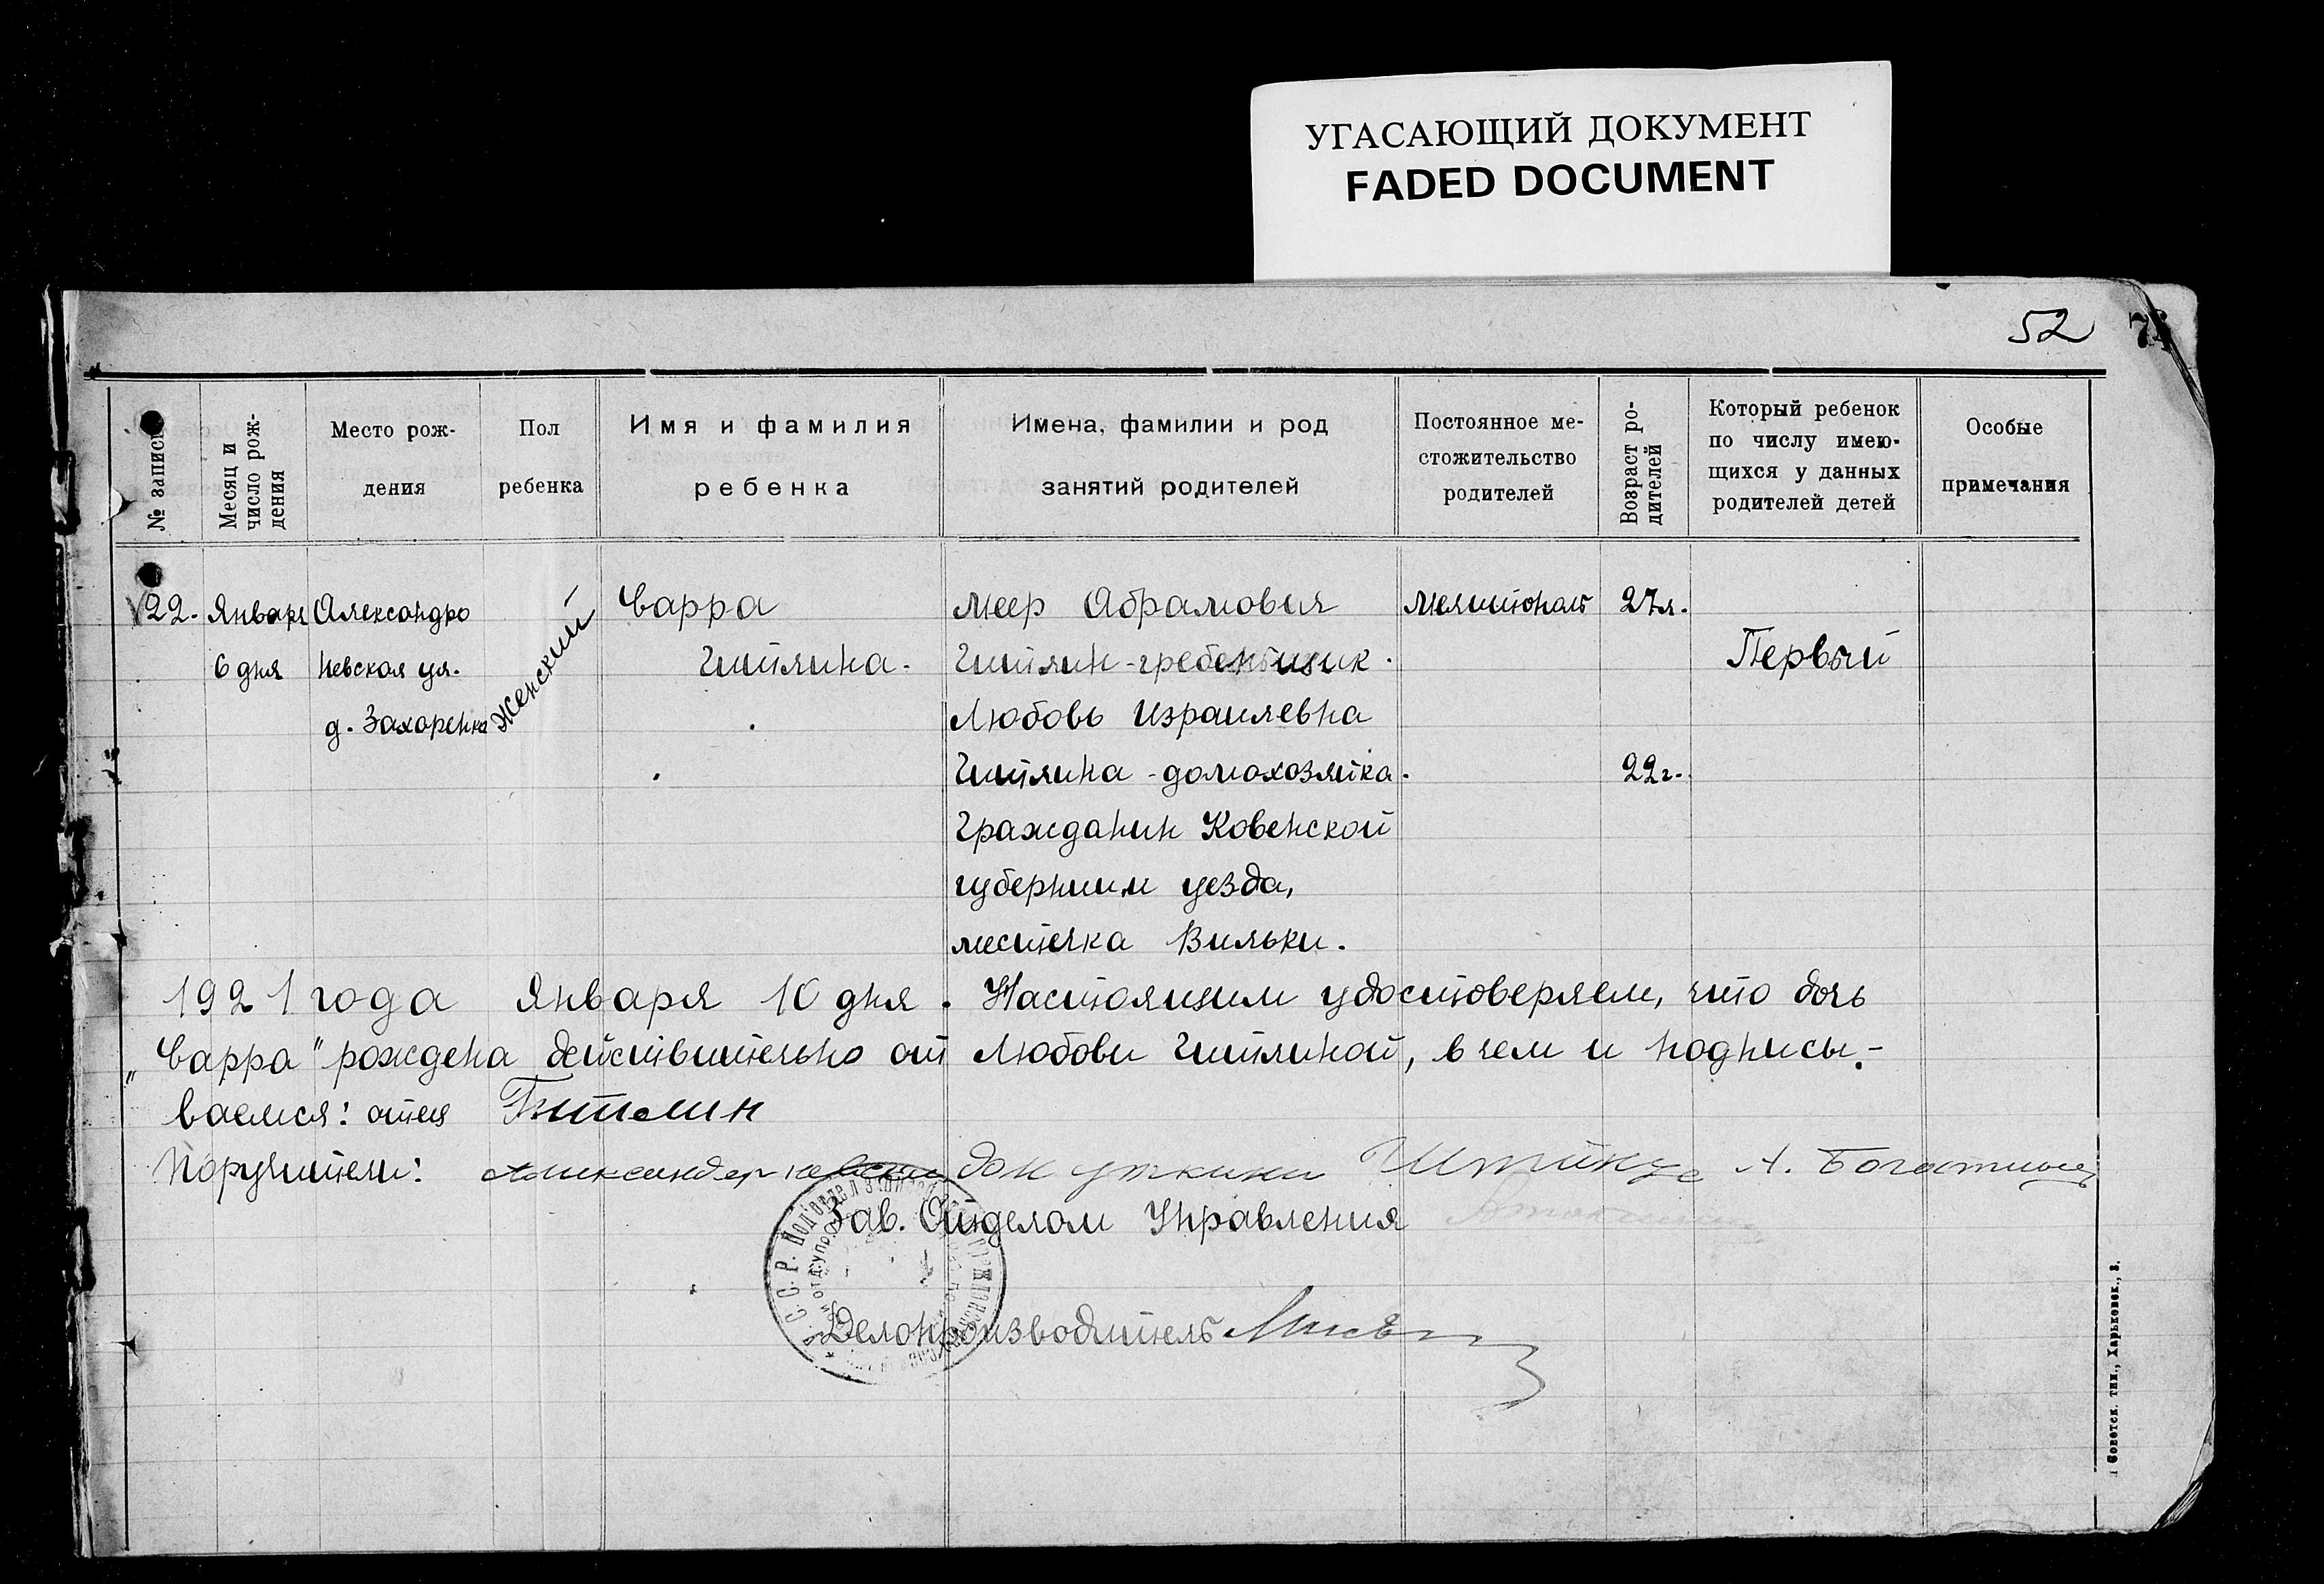 УГАСАЮЩИЙ ДОКУМЕНТ
FADED DOCUMENT
52
№ записи
Месяц и число рож-
дения
Место рож-
дения
Пол
ребенка
Имя и фамилия
ребенка
Имена, фамилии и род
занятий родителей
Постоянное ме-
стожительство
родителей
Возраст ро-
дителей
Который ребенок
по числу имею-
щихся у данных
родителей детей
Особые
примечания
22.
Января
6 дня
Александро
Невская ул.
д. Захоренка
Женский
Сарра
Гитлина.
Меер Абрамович
Гитлин-гребенщик.
Любовь Израилевна
Гитлина-домохозяйка.
Гражданин Ковенской
губернии и уезда,
местечка Вильки.
Мелитополь
27л.
22г.
Первый
1921 года Января 10 дня. Настоящим удостоверяем, что дочь
„Сарра" рождена действительно от Любови Гитлиной, в чем и подписы-
ваемся: отец Гителин
Поручители: Александер Невски дом
Зав. Отделом Управления
Делопроизводитель
Советск. тип., Харьковск., 3.